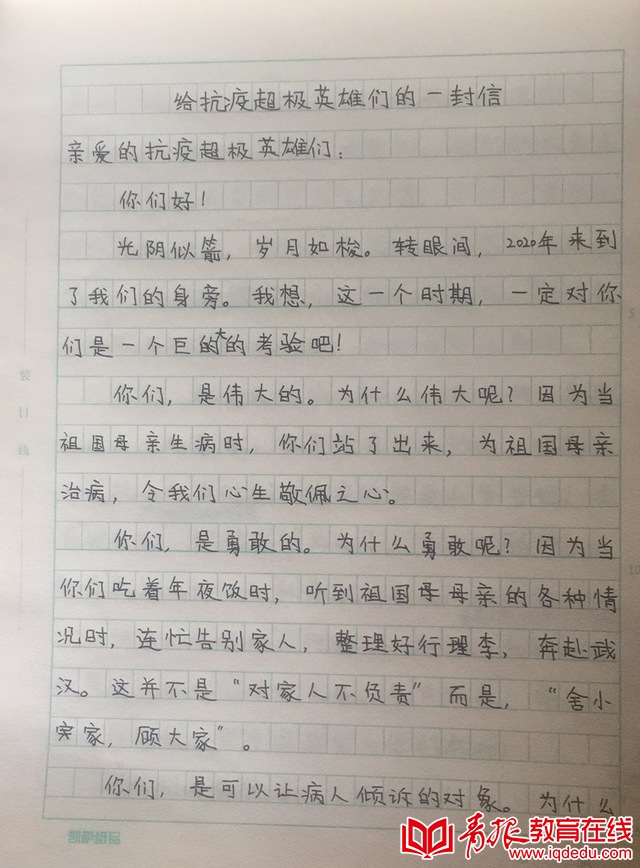 给抗疫超极英雄们的一封信
亲爱的抗疫超极英雄们：
你们好！
光阴似箭，岁月如梭。转眼间，2020年来到
了我们的身旁。我想，这一个时期，一定对你
们是一个巨的大的考验吧！
你们，是伟大的。为什么伟大呢？因为当
祖国母亲生病时，你们站了出来，为祖国母亲
治病，令我们心生敬佩之心。
你们，是勇敢的。为什么勇敢呢？因为当
你们吃着年夜饭时，听到祖国母母亲的各种情
况时，连忙告别家人，整理好行理李，奔赴武
汉。这并不是“对家人不负责”而是，“舍小
家，顾大家”。
你们，是可以让病人倾诉的对象。为什么
装
订
线
5
10
凯萨纸品
青报教育在线
www.iqdedu.com